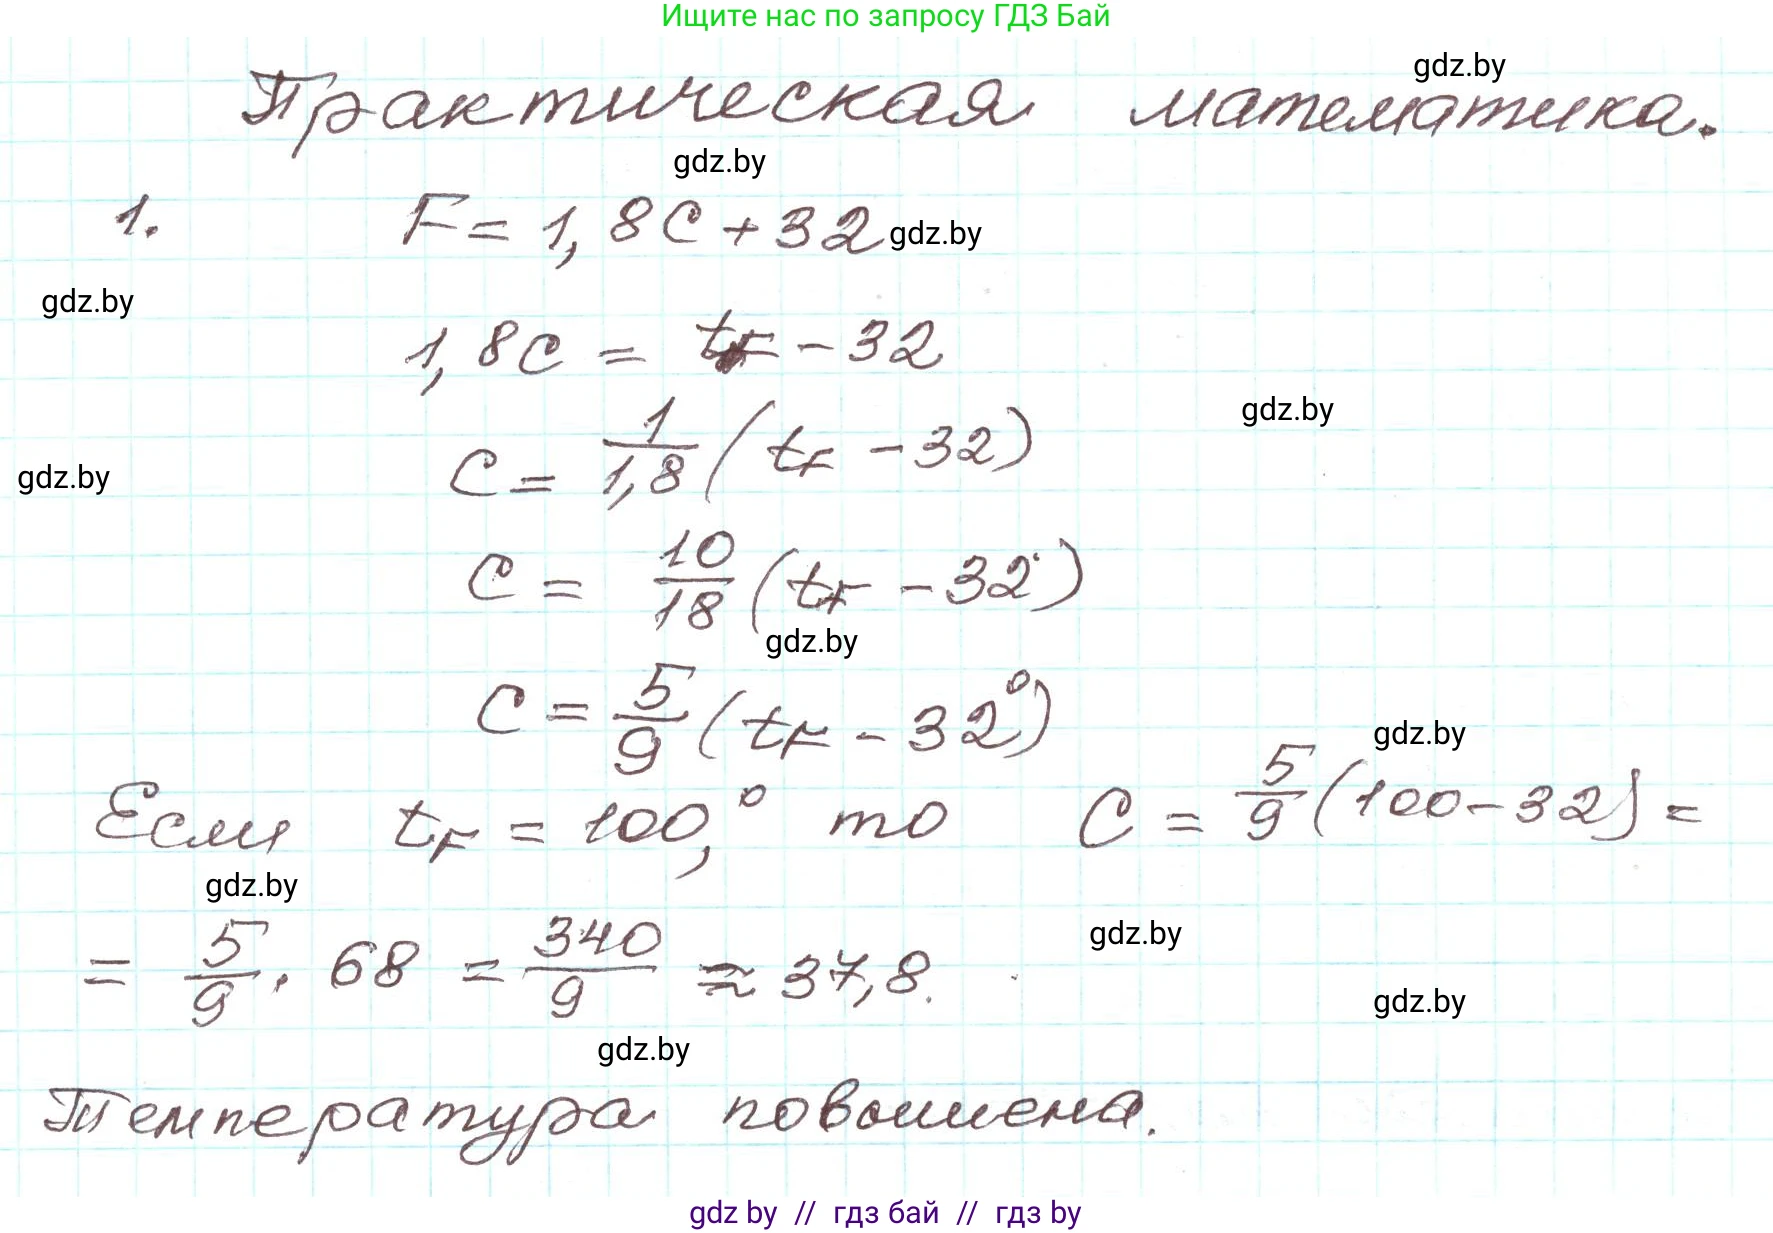 Ищите нас по запросу ГДЗ Бай
gdz.by
Практическая математика.
gdz.by
1. F = 1,8C + 32 gdz.by
gdz.by
1,8C = tF - 32
gdz.by
C = 1/1,8 (tF - 32)
gdz.by
C = 10/18 (tF - 32°)
gdz.by
C = 5/9 (tF - 32°)
gdz.by
Если tF = 100,° то C = 5/9 (100 - 32) =
gdz.by
gdz.by
= 5/9 · 68 = 340/9 ≈ 37,8.
gdz.by
gdz.by
Температура повышена.
gdz by // гдз бай // гдз by